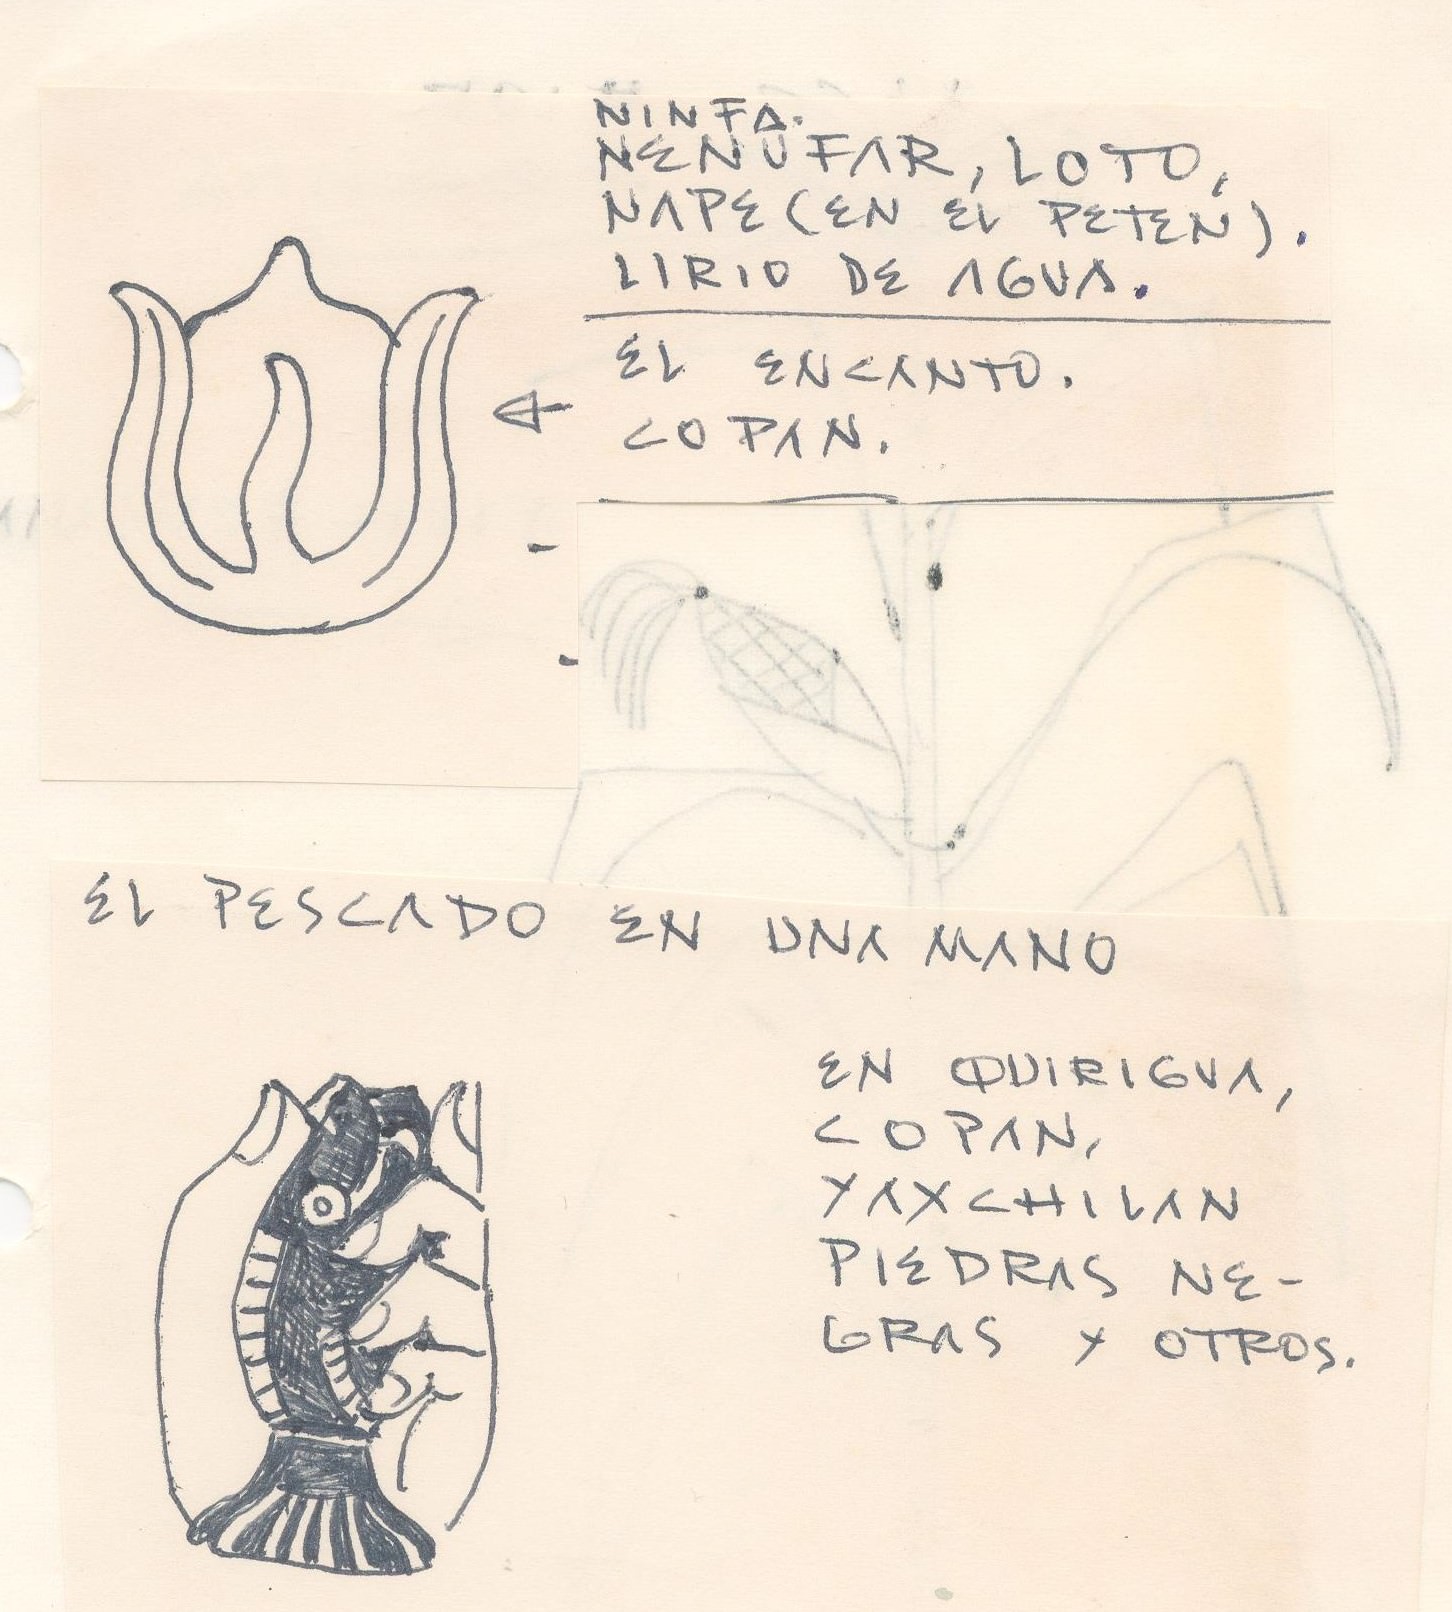 NINFA.
NENUFAR, LOTO,
NAPE (EN EL PETEN).
LIRIO DE AGUA.
EL ENCANTO.
COPAN.
EL PESCADO EN UNA MANO
EN QUIRIGUA,
COPAN,
YAXCHILAN
PIEDRAS NE-
GRAS Y OTROS.